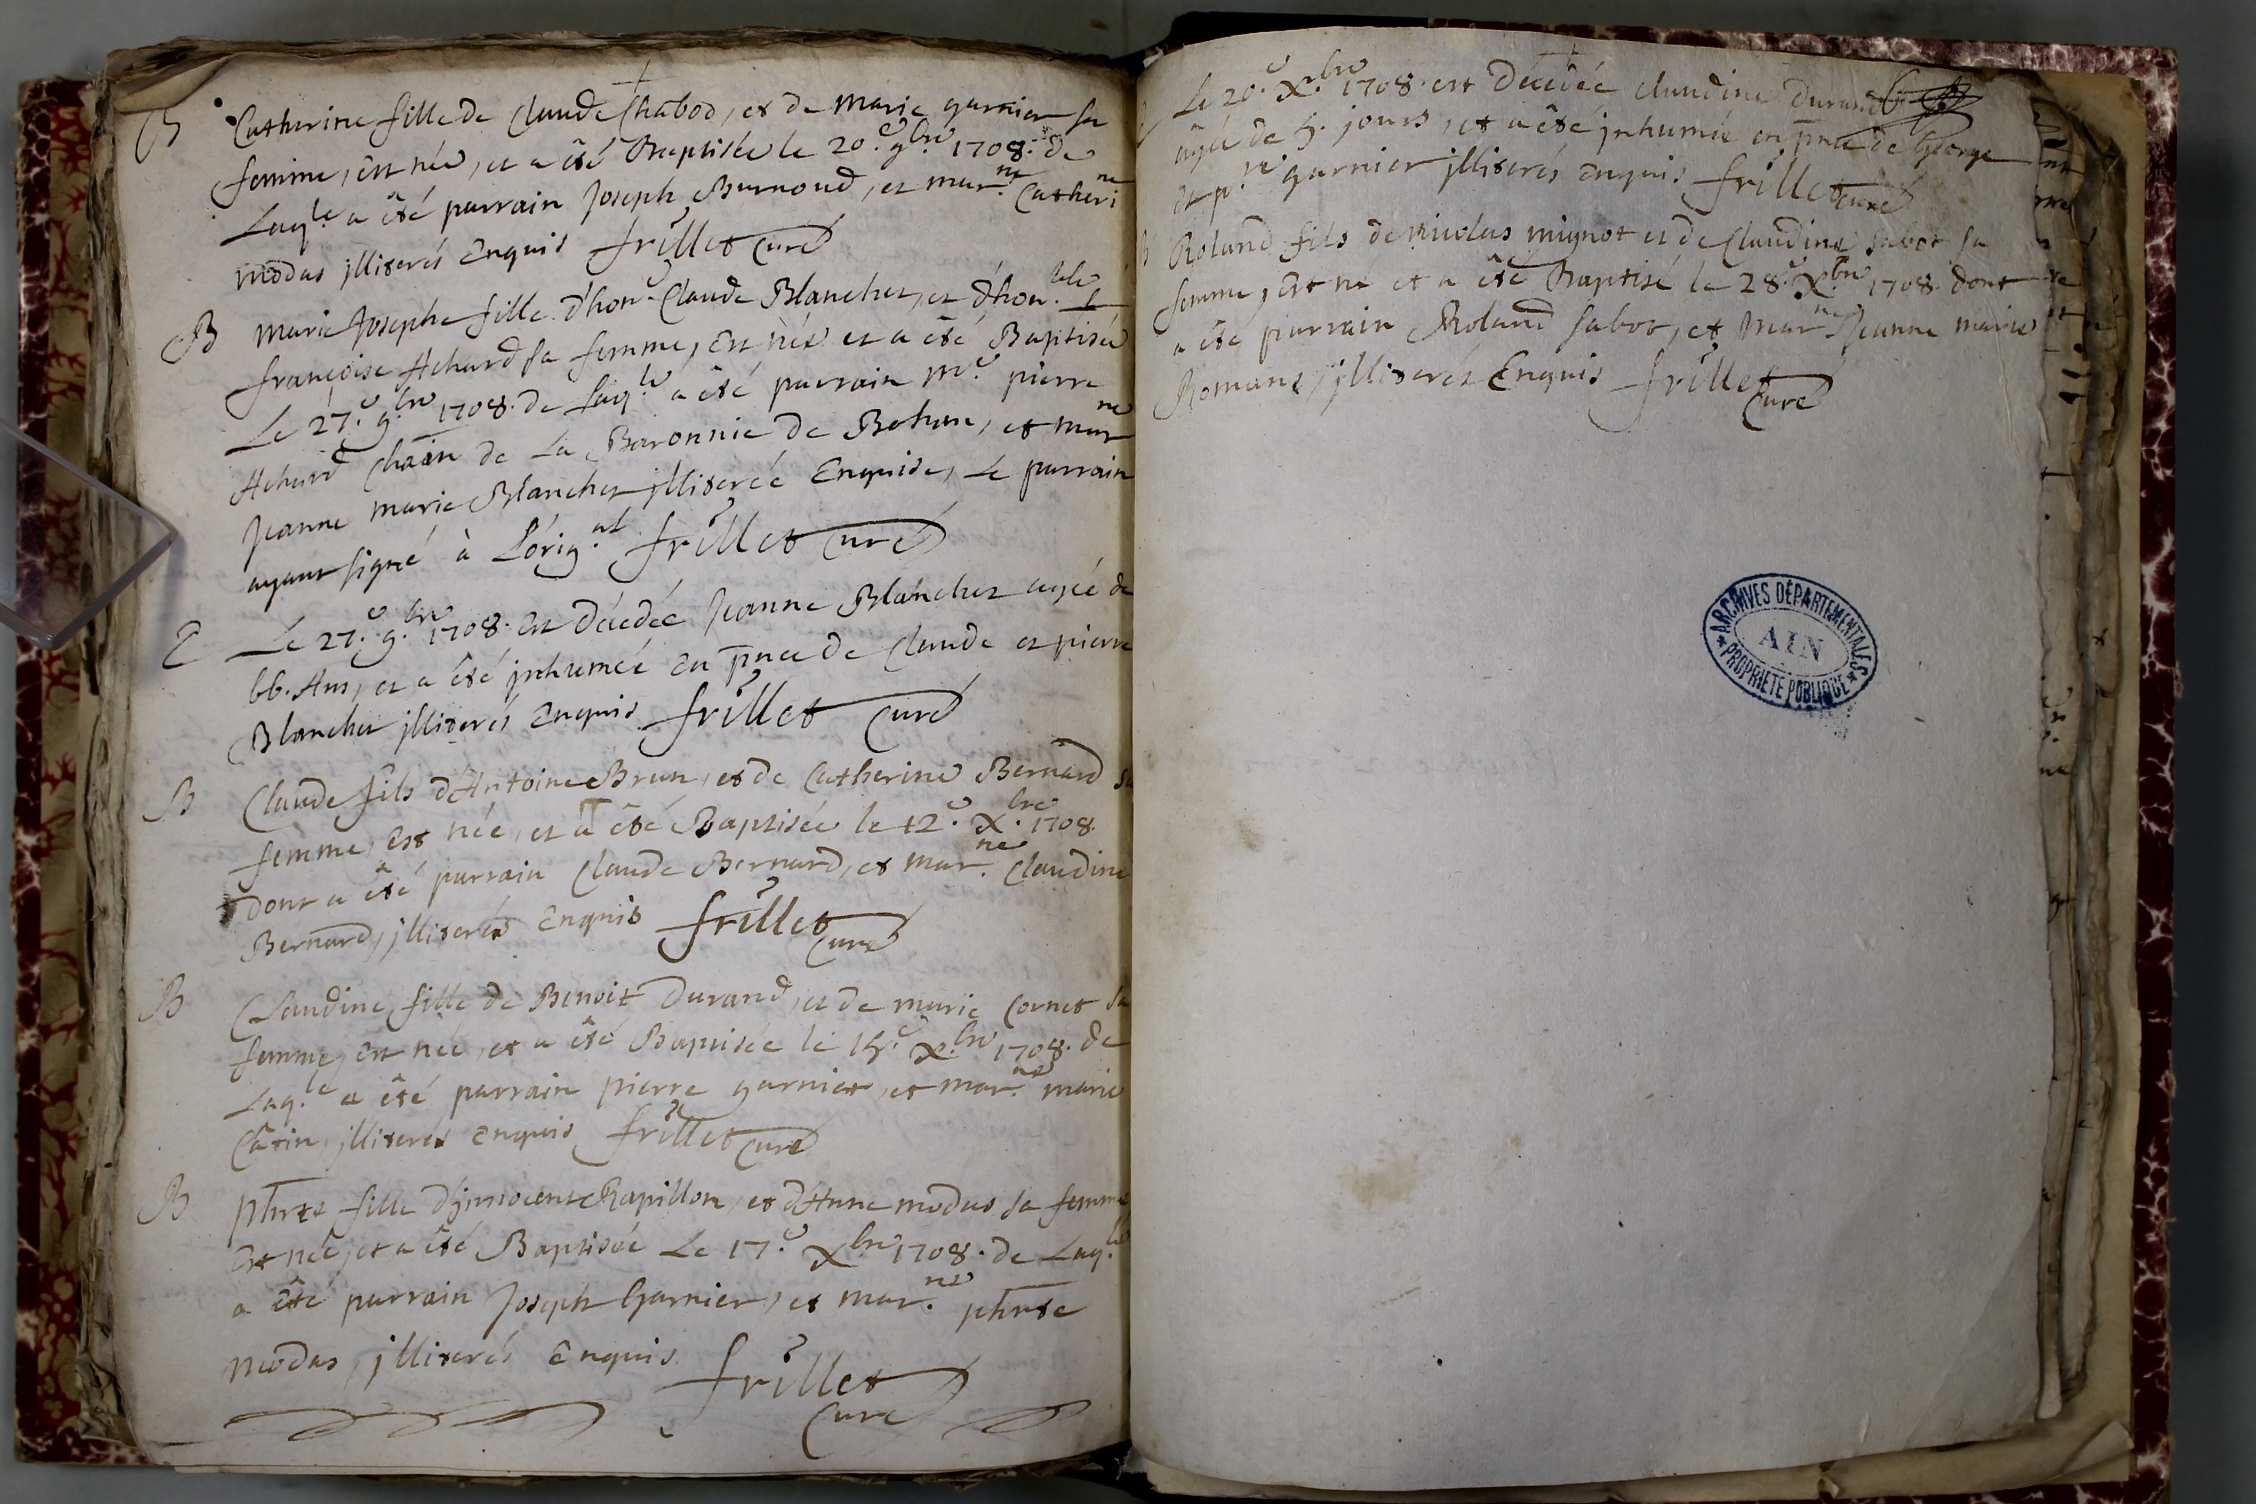 B Catherine fille de Claude Chabod, et de marie garnier sa
femme, est née, et a été Baptisée le 20.e 9.bre 1708. de
Laq.le a été parrain Joseph Burnoud, et mar.ne Catherine
modas jlliterés Enquis frillet Curé
B marie Josephe fille d'hon.e Claude Blanchet, et d'hon.ble
françoise Achard sa femme, est née et a été Baptisée
Le 27.e 9.bre 1708. de Laq.le a été parrain m.e pierre
Achard Chãin de La Baronnie de Bohan, et mar.ne
Jeanne marie Blanchet jlliterée Enquise, Le parrain
ayant signé à L'orig.al frillet Curé
E Le 27.e 9.bre 1708. est décédée Jeanne Blanchet agée de
66. Ans, et a été jnhumée en p̄nce de Claude et pierre
Blanchet jlliterés Enquis frillet Curé
B Claude fils d'Antoine Brun, et de Catherine Bernard sa
femme, est née, et a été Baptisée le 12.e X.bre 1708.
dont a été parrain Claude Bernard, et mar.ne Claudine
Bernard, jlliterés Enquis frillet Curé
B Claudine, fille de Benoit Durand, et de marie Cornet sa
femme, est née, et a été Baptisée le 15.e X.bre 1708. de
Laq.le a été parrain pierre garnier, et mar.ne marie
Câtin, jlliterés Enquis frillet Curé
B phrte fille d'jnnocent Rapillon, et d'Anne modas sa femme
est née, et a été Baptisée Le 17.e X.bre 1708. de Laq.le
a été parrain Joseph Garnier, et mar.ne phrte
modas, jlliterés Enquis frillet
Curé
Le 20.e X.bre 1708. est décédée claudine durand
agée de 5. jours, et a été jnhumée en p̄nce de George
et p.re garnier jlliterés Enquis frillet Curé
B Roland fils de nicolas mignot et de Claudine Sabot sa
femme, est né et a été Baptisé le 28.e X.bre 1708. dont
a été parrain Roland Sabot, et mar.ne Jeanne marie
Romans, jlliterés Enquis frillet Curé
ARCHIVES DÉPARTEMENTALES
AIN
PROPRIÉTÉ PUBLIQUE